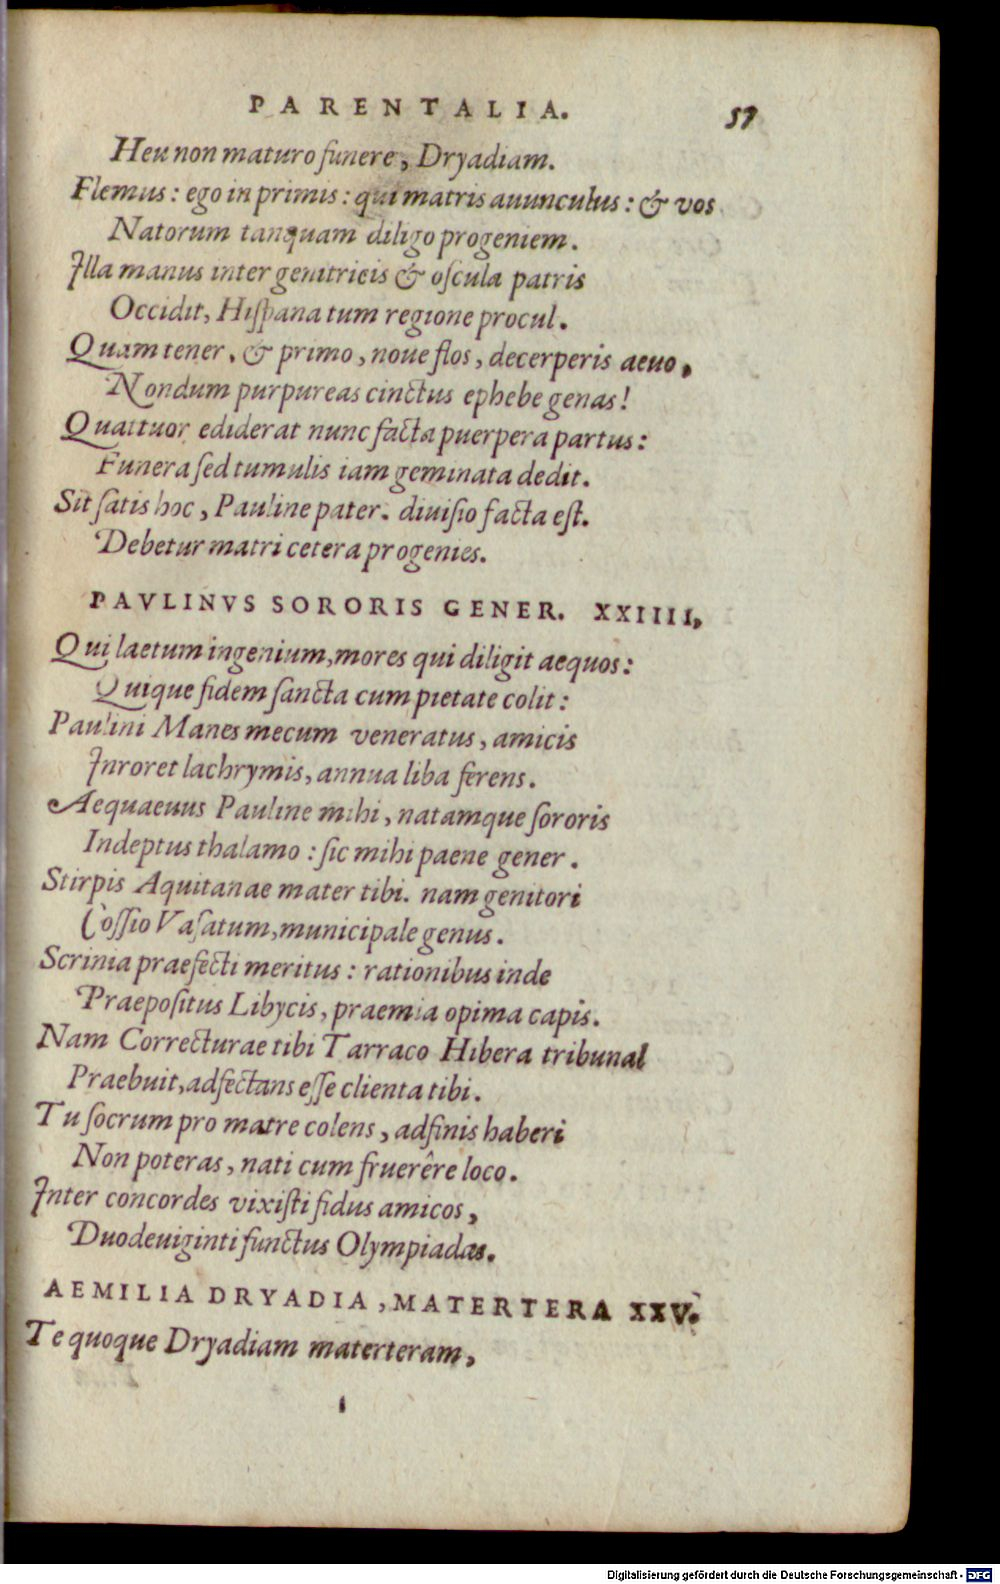 PARENTALIA. 57
Heu non maturo funere, Dryadiam.
Flemus: ego in primis: qui matris auunculus: & vos
Natorum tanquam diligo progeniem.
Illa manus inter genitricis & oſcula patris
Occidit, Hiſpana tum regione procul.
Quam tener, & primo, noue flos, decerperis aeuo,
Nondum purpureas cinctus ephebe genas!
Quattuor ediderat nunc facta puerpera partus:
Funera ſed tumulis iam geminata dedit.
Sit ſatis hoc, Pauline pater. diuiſio facta eſt.
Debetur matri cetera progenies.
PAVLINVS SORORIS GENER. XXIIII,
Qui laetum ingenium, mores qui diligit aequos:
Quique fidem ſancta cum pietate colit:
Paulini Manes mecum veneratus, amicis
Inroret lachrymis, annua liba ferens.
Aequaeuus Pauline mihi, natamque ſororis
Indeptus thalamo: ſic mihi paene gener.
Stirpis Aquitanae mater tibi. nam genitori
Coſſio Vaſatum, municipale genus.
Scrinia praefecti meritus: rationibus inde
Praepoſitus Libycis, praemia opima capis.
Nam Correcturae tibi Tarraco Hibera tribunal
Praebuit, adfectans eſſe clienta tibi.
Tu ſocrum pro matre colens, adfinis haberi
Non poteras, nati cum fruerêre loco.
Inter concordes vixiſti fidus amicos,
Duodeuiginti functus Olympiadas.
AEMILIA DRYADIA, MATERTERA XXV.
Te quoque Dryadiam materteram,
i
Digitalisierung gefördert durch die Deutsche Forschungsgemeinschaft - DFG